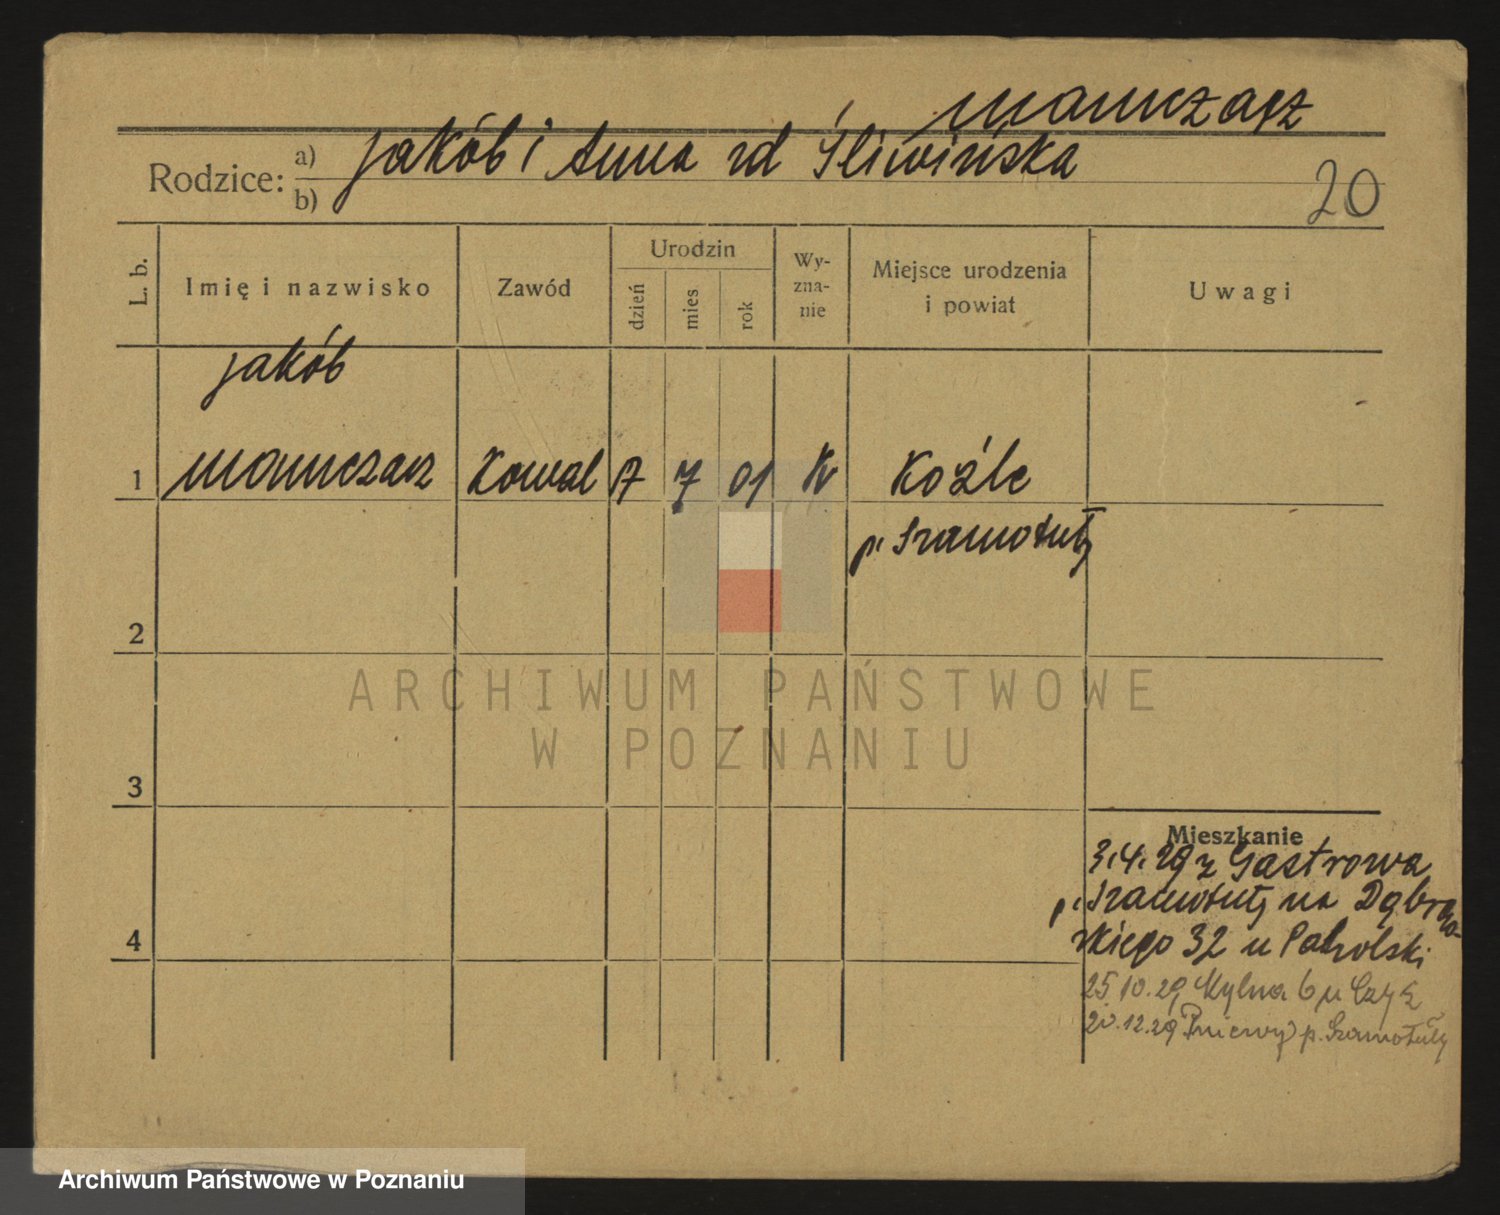 Mamczarz
Rodzice: a) Jakób i Anna zd Śliwińska
b)
20
L. b. Imię i nazwisko Zawód Urodzin dzień mies rok Wy-zna-nie Miejsce urodzenia i powiat Uwagi
Jakób
1 Mamczarz Kowal 17 7 01 K Koźle
p. Szamotuły
2
ARCHIWUM PAŃSTWOWE
W POZNANIU
3
Mieszkanie
3.4.29 z
p. Szamotuły na Dąbrow-
skiego 32 u
4
25.10.29 Mylna 6 u Czyż
20.12.29 Pniewy p. Szamotuły
Archiwum Państwowe w Poznaniu